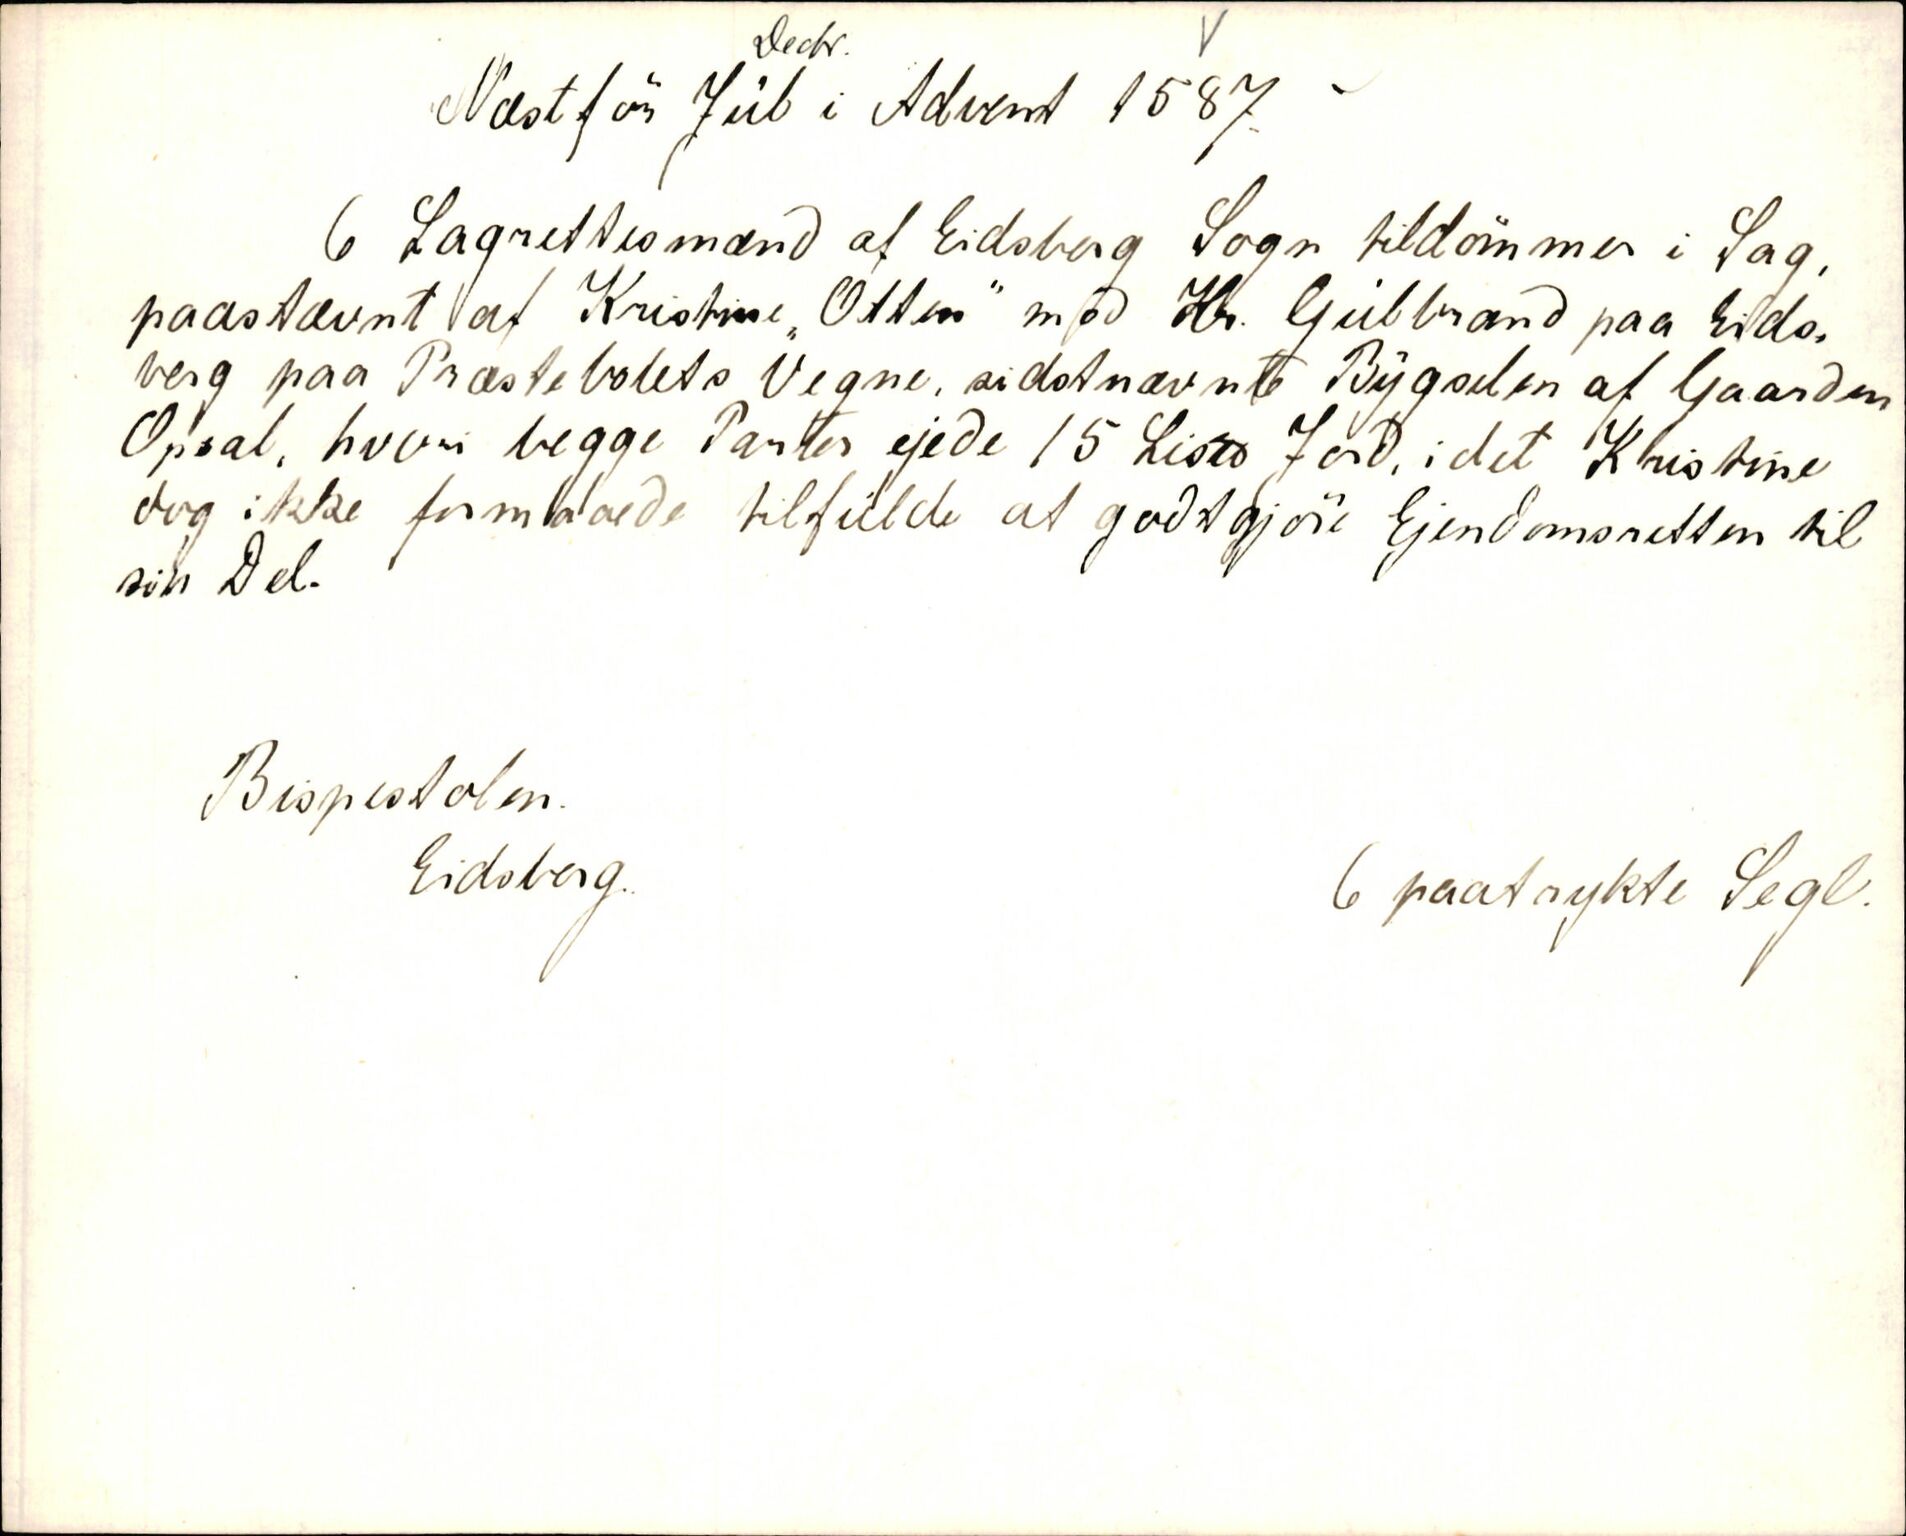 Decbr.
Næst för Jül i Advent 1587
6 Lagrettesmænd af Eidsberg Sogn tildömmer i Sag,
paastævnt af Kristine „Otten" mod Hr. Gülbrand paa Eids-
berg paa Præstebolets Vegne, sidstnævnte Bÿgselen af Gaarden
Opsal, hvori begge Parter ejede 15 Lis Jord, idet Kristine
dog ikke formaaede tilfülde at godtgjöre Ejendomsretten til
sin Del.
Bispestolen.
Eidsberg.
6 paatrykte Segl.